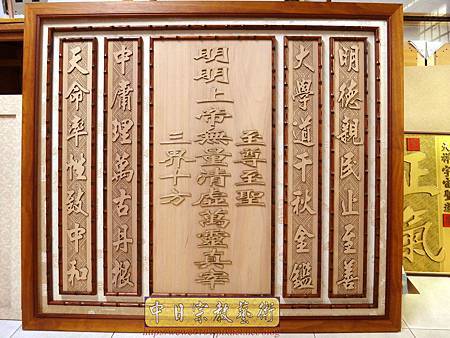 明德親民止至善
大學道千秋金鑑
至尊至聖
明明上帝無量清虛萬靈真宰
三界十方
中庸理萬古丹根
天命率性致中和
中日宗教藝術
正氣